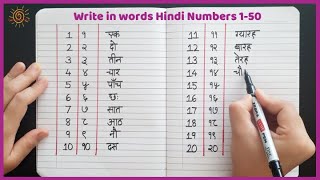 Write in words Hindi Numbers 1-50
1 १ एक
2 २ दो
3 ३ तीन
4 ४ चार
5 ५ पाँच
6 ६ छः
7 ७ सात
8 ८ आठ
9 ९ नौ
10 १० दस
11 ११ ग्यारह
12 १२ बारह
13 १३ तेरह
14 १४ चौ
15 १५
16 १६
17 १७
18 १८
19 १९
20 २०